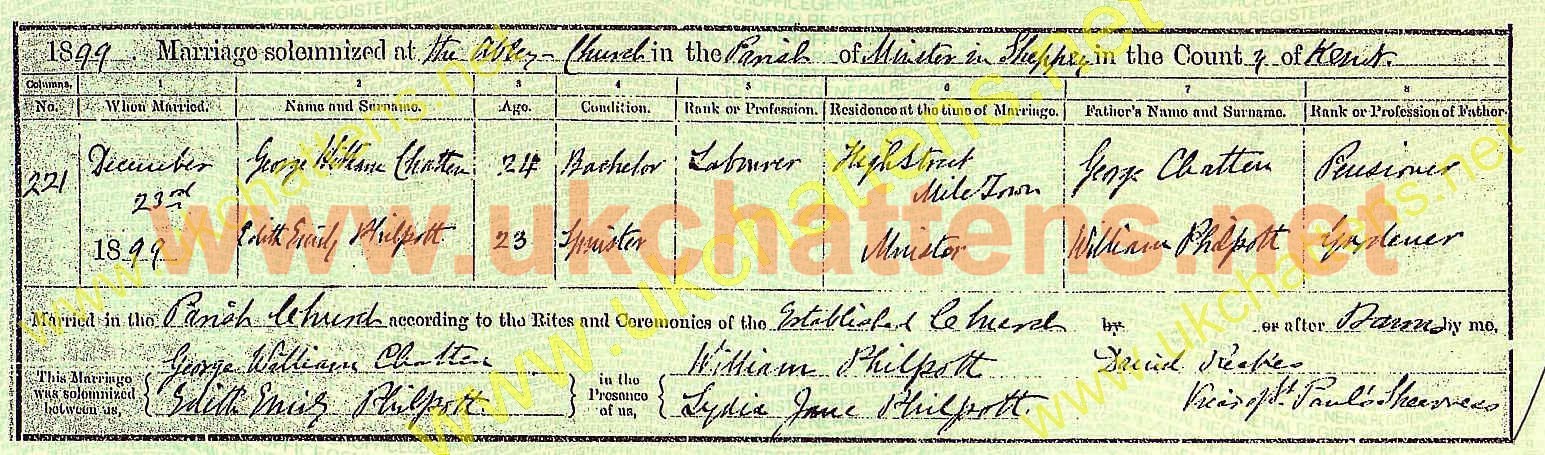 1899. Marriage solemnized at the Abbey-Church in the Parish of Minster in Sheppey in the County of Kent.
Columns, 1 2 3 4 5 6 7 8
No. When Married. Name and Surname. Age. Condition. Rank or Profession. Residence at the time of Marriage. Father's Name and Surname. Rank or Profession of Father.
221 December 23rd 1899 George William Chatten 24 Bachelor Labourer High Street Mile Town George Chatten Pensioner
Edith Emily Philpott 23 Spinster Minster William Philpott Gardener
Married in the Parish Church according to the Rites and Ceremonies of the Established Church by or after Banns by me,
This Marriage was solemnized between us, George William Chatten Edith Emily Philpott in the Presence of us, William Philpott Lydia Jane Philpott. David Vicar of St. Paul's Sheerness
www.ukchattens.net